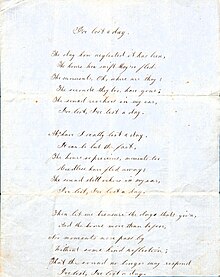 I've lost a day.
The day how neglected it has been,
The hours how swift they've fled
The moments, Oh, where are they?
The seconds they too have gone;
The sound reechoes in my ear,
I've lost, I've lost a day.
Ah have I really lost a day.
It can be but the fact.
The hours so precious, minutes too
Needless have fled away;
The sound still echoes in my ear,
I've lost, I've lost a day.
Then let me treasure the days that's given,
And the hours more than before,
No moments more pass by
Without some kind reflection;
That the sound no longer may respond
I've lost, I've lost a day.